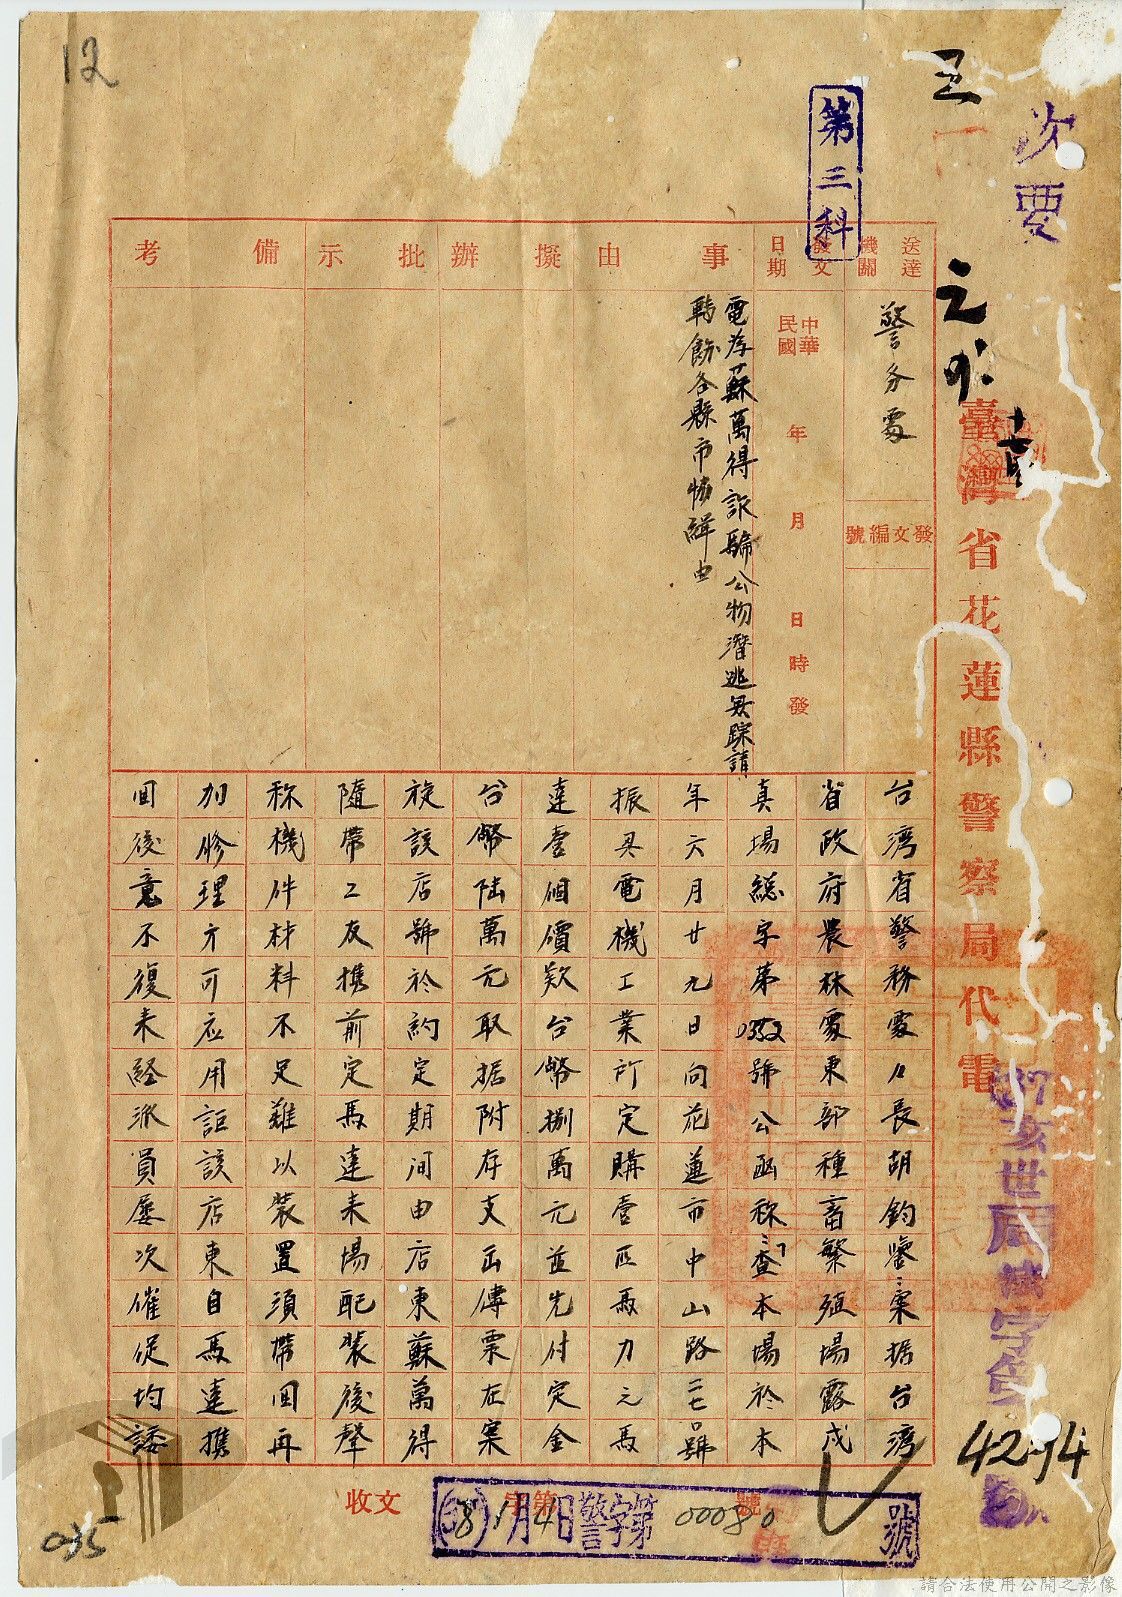 12
次要
第三科
臺灣省花蓮縣警察局代電
送達機關
警务處
發文編號
發文日期
中華民國 年 月 日 時 發
事由
電為蘇萬得詐騙公物潛逃無踪請
轉飭各縣市協緝由
擬辦
批示
備考
台湾省警務處處長胡鈞鑒:案据台湾
省政府農林處東部種畜繁殖場露戍
真場總字第0352號公函称:「查本場於本
年六月廿九日向花蓮市中山路二七口號
振興電機工業所定購壹匹馬力元馬
達壹個價款台幣捌萬元並先付定金
台幣陸萬元取据附存支出傳票在案
旋該店號於約定期间由店東蘇萬得
隨帶工友携前定馬達来場配裝後聲
称機件材料不足難以裝置須帶回再
加修理方可应用詎該店東自馬達携
回後意不復来経派員屡次催促均諉
37亥世
法字第
4274
號
收文 字第 號
38 1月4日警字第00080號
035
請合法使用公開之影像